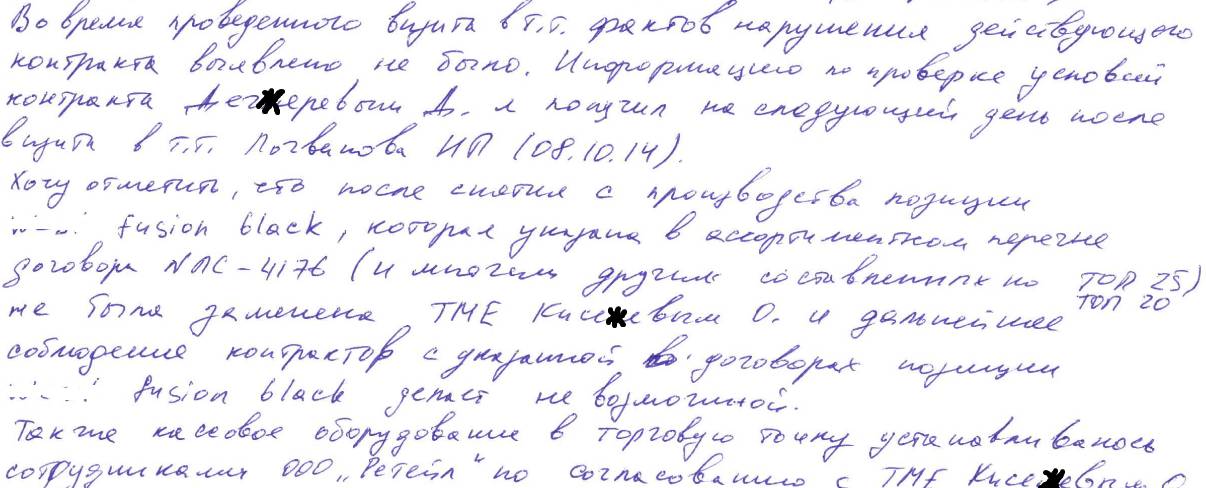 Во время проведенного визита в т.т. фактов нарушения действующего
контракта выявлено не было. Информацию по проверке условий
контракта Д. я получил на следующий день после
визита в т.т. Логвинова ИП (08.10.14).
Хочу отметить, что после снятия с производства позиции
fusion black, которая указана в ассортиментном перечне
договора NЛС-4176 (и многими другими составленных по ТОП 25)
ТОП 20
не была заменена ТМЕ О. и дальнейшее
соблюдение контрактов с указанной в договорах позиции
fusion black делает не возможной.
Также кассовое оборудование в торговую точку устанавливалось
сотрудниками ООО „Ретейл" по согласованию с ТМЕ